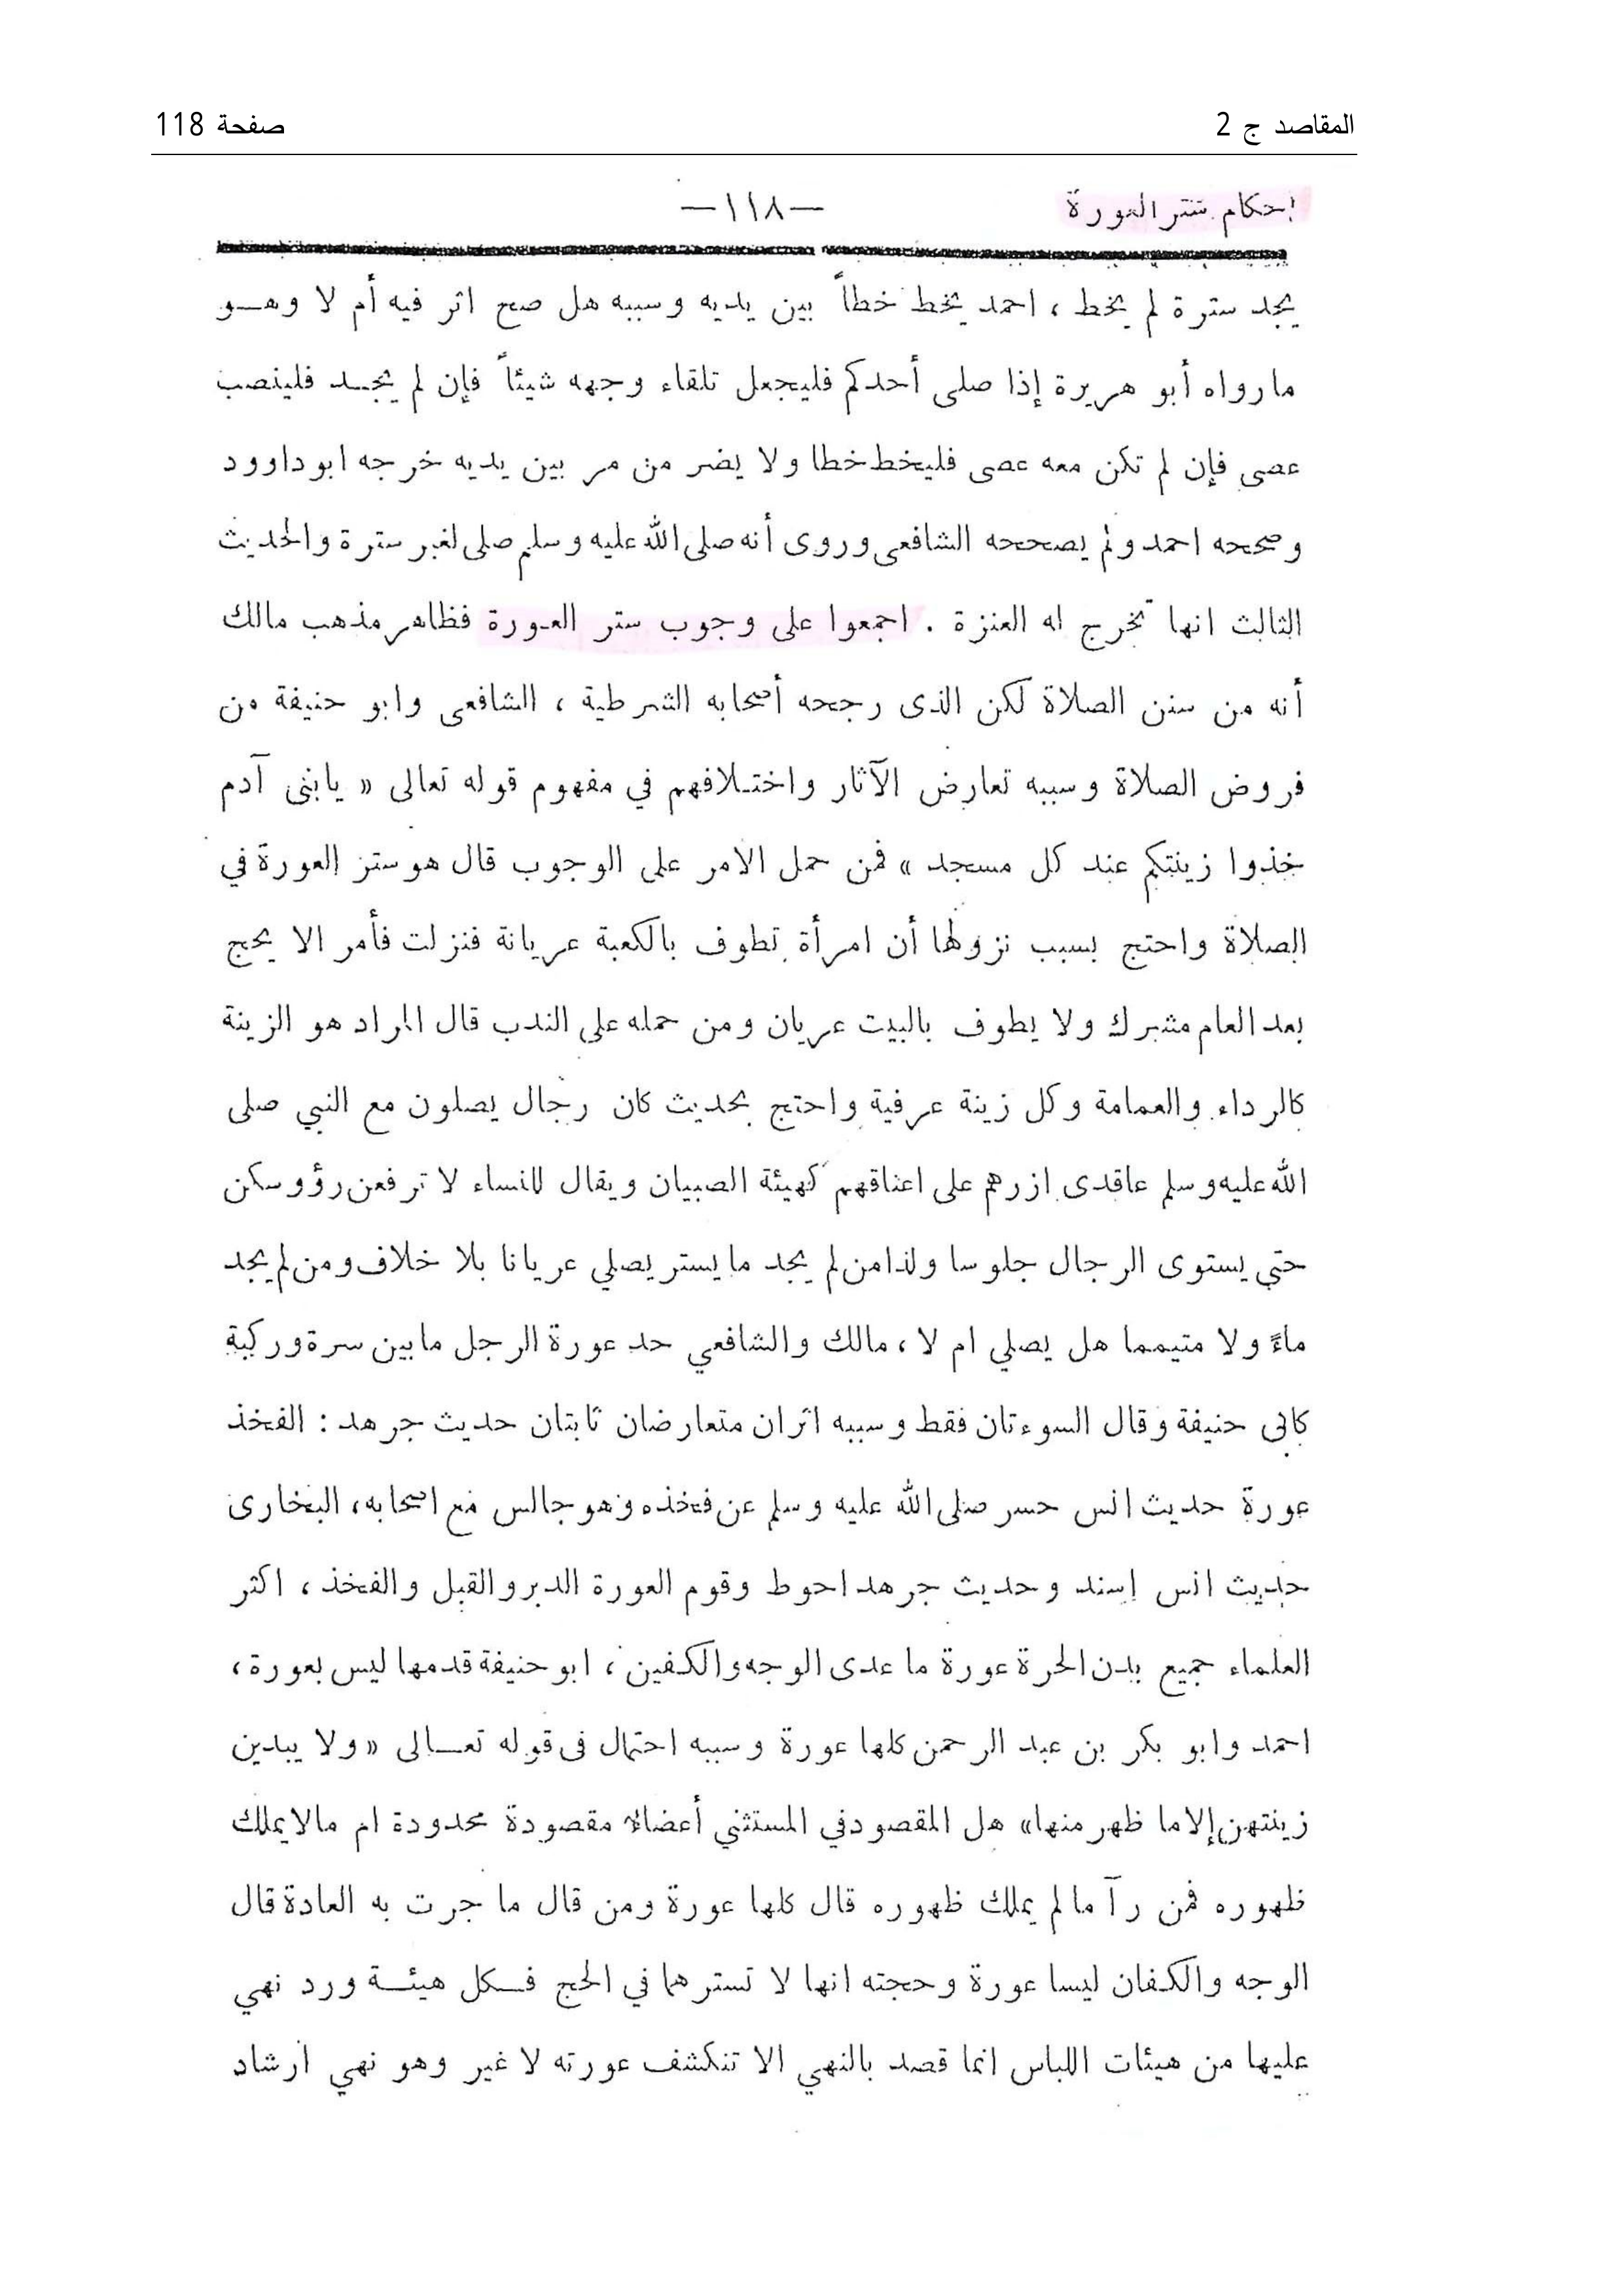 المقاصد ج 2
صفحة 118
احكام ستر العورة
—١١٨—
يجد سترة لم يخط ، احمد يخط خطاً بين يديه وسببه هل صح اثر فيه أم لا وهــو
مارواه أبو هريرة إذا صلى أحدكم فليجعل تلقاء وجهه شيئاً فإن لم يجــد فلينصب
عصى فإن لم تكن معه عصى فليخط خطا ولا يضر من مر بين يديه خرجه ابو داوود
وصححه احمد ولم يصححه الشافعى وروى أنه صلى الله عليه وسلم صلى لغير سترة والحديث
الثالث انها تخرج له العنزة . اجمعوا على وجوب ستر العورة فظاهر مذهب مالك
أنه من سنن الصلاة لكن الذى رجحه أصحابه الشرطية ، الشافعى وابو حنيفة من
فروض الصلاة وسببه تعارض الآثار واختلافهم في مفهوم قوله تعالى « يابنى آدم
خذوا زينتكم عند كل مسجد » فمن حمل الامر على الوجوب قال هو ستر العورة في
الصلاة واحتج بسبب نزولها أن امرأة تطوف بالكعبة عريانة فنزلت فأمر الا يحج
بعد العام مشرك ولا يطوف بالبيت عريان ومن حمله على الندب قال المراد هو الزينة
كالرداء والعمامة وكل زينة عرفية واحتج بحديث كان رجال يصلون مع النبي صلى
الله عليه وسلم عاقدى ازرهم على اعناقهم كهيئة الصبيان ويقال للنساء لا ترفعن رؤوسكن
حتى يستوى الرجال جلوسا ولذا من لم يجد ما يستر يصلي عريانا بلا خلاف ومن لم يجد
ماءً ولا متيمما هل يصلي ام لا ، مالك والشافعي حد عورة الرجل ما بين سرة وركبة
كابى حنيفة وقال السوءتان فقط وسببه اثران متعارضان ثابتان حديث جرهد : الفخذ
عورة حديث انس حسر صلى الله عليه وسلم عن فخذه وهو جالس مع اصحابه ، البخارى
حديث انس اسند وحديث جرهد احوط وقوم العورة الدبر والقبل والفخذ ، اكثر
العلماء جميع بدن الحرة عورة ما عدى الوجه والكفين ، ابو حنيفة قدمها ليس بعورة ،
احمد وابو بكر بن عبد الرحمن كلها عورة وسببه احتمال فى قوله تعــالى « ولا يبدين
زينتهن إلا ما ظهر منها » هل المقصود في المستثنى أعضاء مقصودة محدودة ام مالا يملك
ظهوره فمن رآ ما لم يملك ظهوره قال كلها عورة ومن قال ما جرت به العادة قال
الوجه والكفان ليسا عورة وحجته انها لا تسترهما في الحج فــكل هيئــة ورد نهي
عليها من هيئات اللباس انما قصد بالنهي الا تنكشف عورته لا غير وهو نهي ارشاد